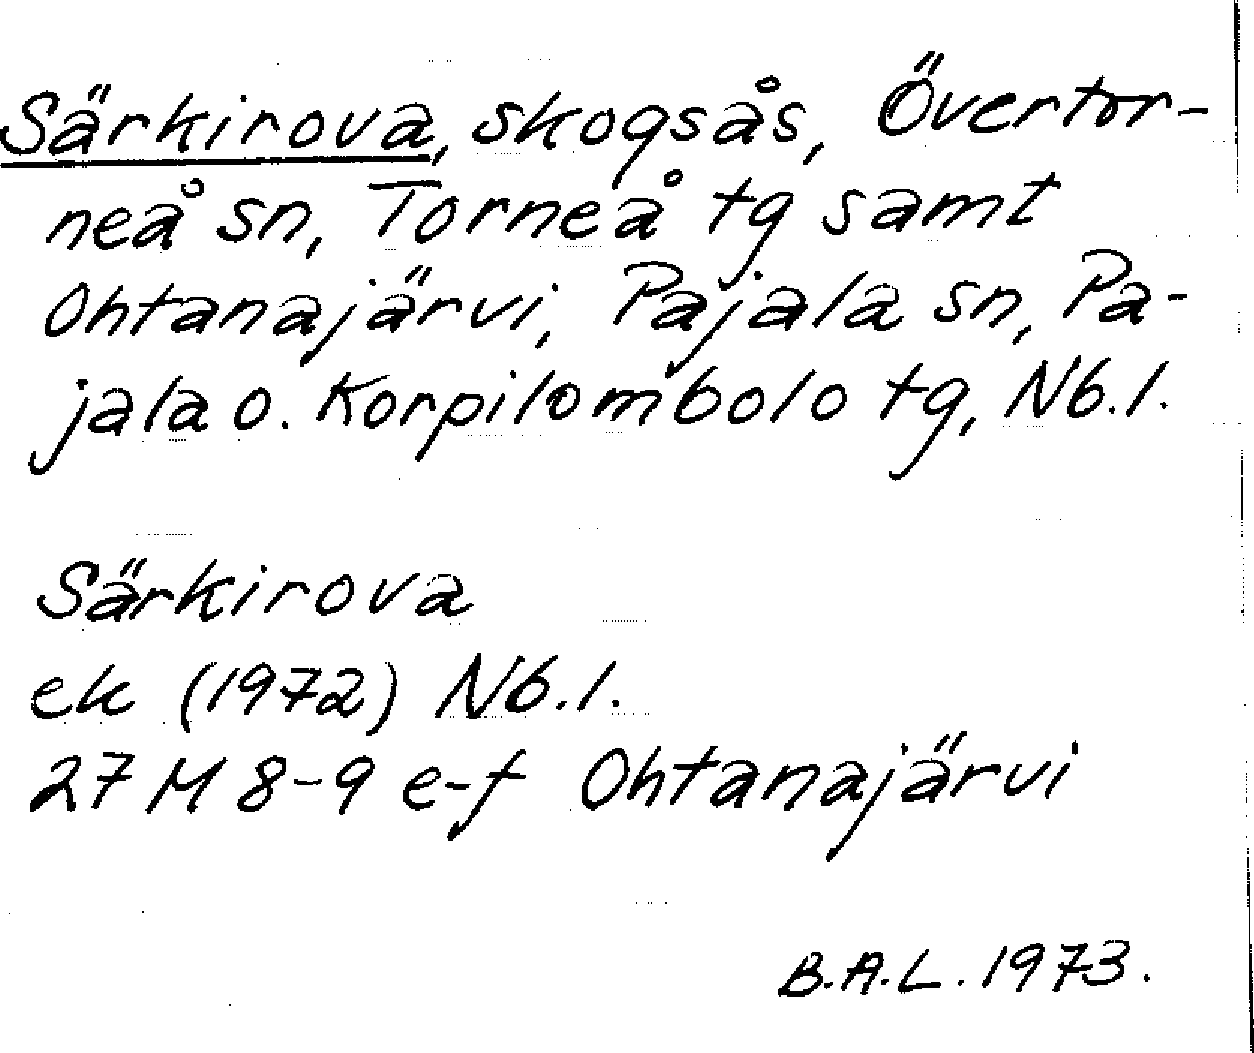 Särkirova, skogsås, Övertor-
neå sn, Torneå tg samt
Ohtanajärvi, Pajala sn, Pa-
jala o. Korpilombolo tg, Nb.l.
Särkirova
ek (1972) Nb.l.
27 M 8-9 e-f Ohtanajärvi
B.A.L. 1973.